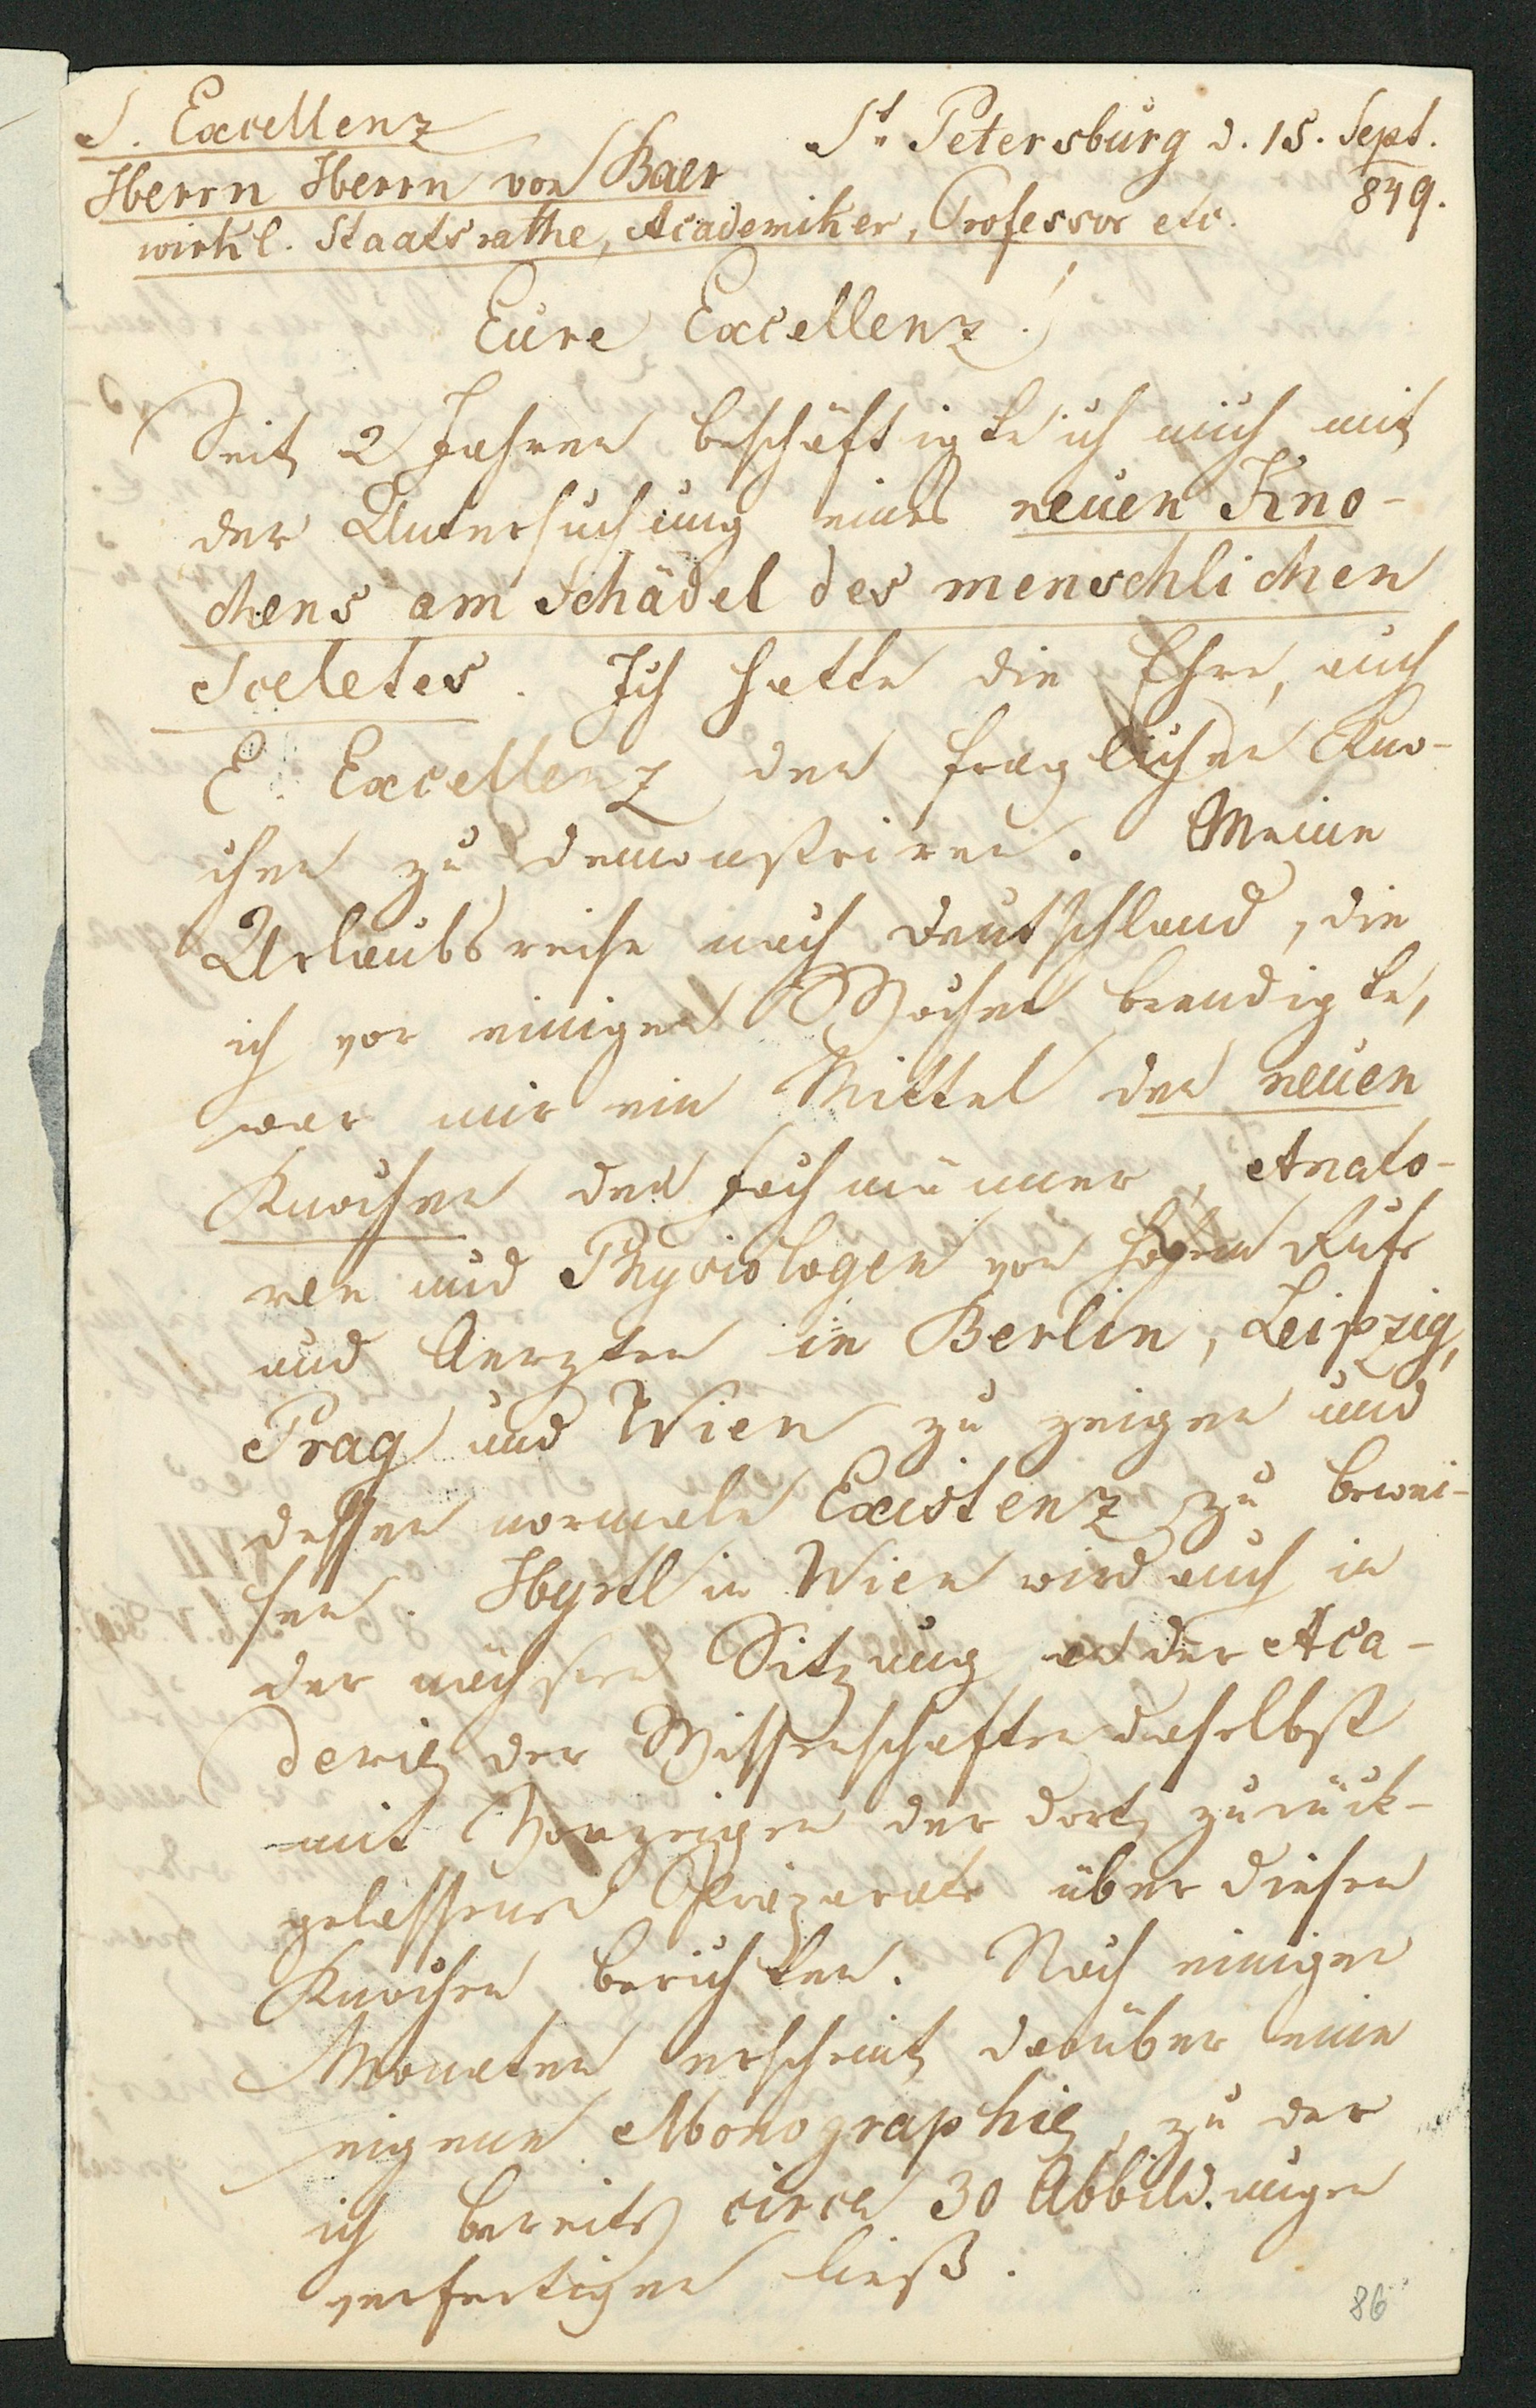 S. Excellenz
St. Petersburg d. 15. Sept.
849.
Herrn Herrn von Baer
wirkl. Staatsrathe, Academiker, Professor etc.
Eure Excellenz!
Seit 2 Jahren beschäftigte ich mich mit
der Untersuchung eines neuen Kno-
chens am Schädel des menschlichen
Sceletes. Ich hatte die Ehre, auch
E. Excellenz den fraglichen Kno-
chen zu demonstriren. Meine
Urlaubsreise nach Deutschland, die
ich vor einigen Wochen beendigte,
war mir ein Mittel den neuen
Knochen den Fachmänner, Anato-
men und Physiologen von hohem Rufe
und Aerzten in Berlin, Leipzig,
Prag und Wien zu zeigen und
dessen normale Existenz zu bewei-
sen. Hyrtl in Wien wird auch in
der nächsten Sitzung der Aca-
demie der Wissenschaften daselbst
mit Vorzeigen der dort zurück-
gelassenen Präparate über diesen
Knochen berichten. Nach einigen
Monaten erscheint darüber eine
eigene Monographie, zu der
ich bereits circa 30 Abbildungen
verfertigen ließ.
86